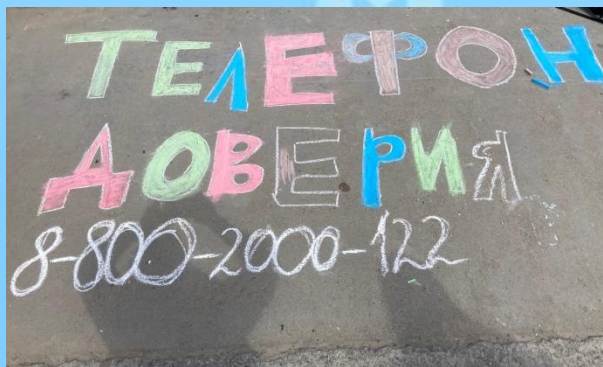 ТЕЛЕФОН
ДОВЕРИЯ
8-800-2000-122